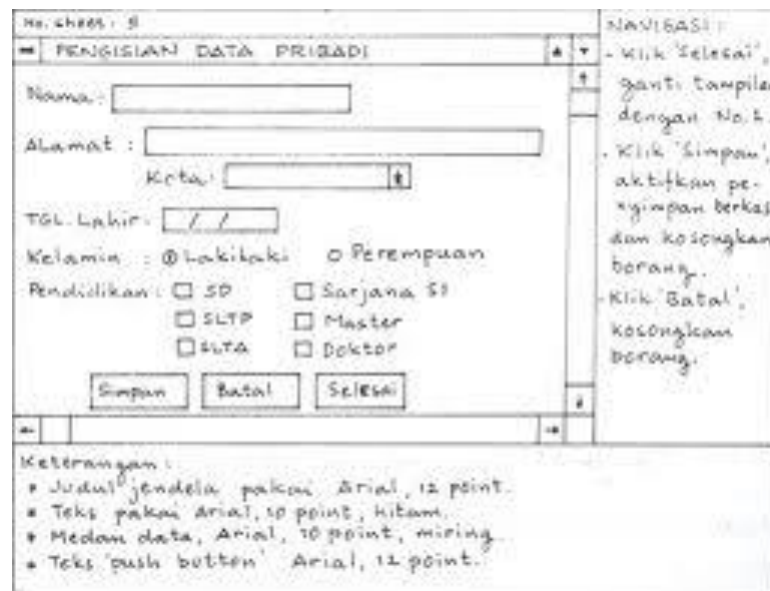 No. sheet : 5
PENGISIAN DATA PRIBADI
Nama :
ALamat :
Kota:
TGL. Lahir: / /
Kelamin : Lakilaki Perempuan
Pendidikan: SD Sarjana S1
SLTP Master
SLTA Doktor
Simpan Batal Selesai
NAVIGASI :
- Klik 'Selesai',
ganti tampilan
dengan No.
- Klik 'Simpan',
aktifkan pe-
nyimpan berkas
dan kosongkan
borang.
- Klik 'Batal',
kosongkan
borang.
Keterangan :
* Judul jendela pakai Arial, 12 point.
* Teks pakai Arial, 10 point, hitam.
* Medan data, Arial, 10 point, miring.
* Teks 'push button' Arial, 12 point.